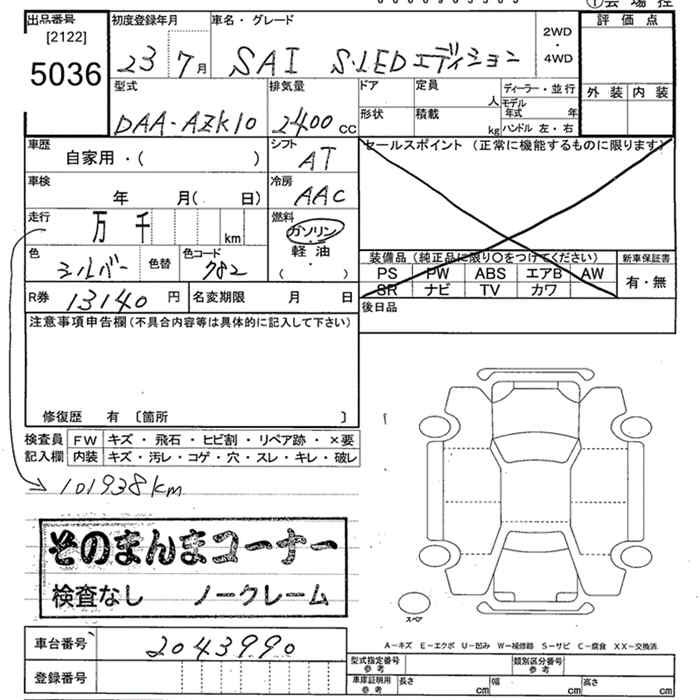 ①会場控
出品番号 初度登録年月 車名・グレード 2WD・4WD 評価点
[2122]
5036 23 7月 SAI S・LEDエディション
型式 排気量 ドア 定員 人 ディーラー・並行 外装 内装
DAA-AZK10 2400cc 形状 積載 kg モデル年式 年 ハンドル 左・右
車歴 シフト セールスポイント(正常に機能するものに限ります)
自家用・( ) AT
車検 冷房
年 月( 日) AAC
走行 燃料
万 千 km ガソリン・軽油・( )
色 色替 色コード 装備品(純正品に限り○をつけてください) 新車保証書
シルバー 782 PS PW ABS エアB AW 有・無
R券 13140円 名変期限 月 日 SR ナビ TV カワ
後日品
注意事項申告欄(不具合内容等は具体的に記入して下さい)
修復歴 有 〔箇所 〕
検査員 FW キズ・飛石・ヒビ割・リペア跡・×要
記入欄 内装 キズ・汚レ・コゲ・穴・スレ・キレ・破レ
→101938km
そのまんまコーナー
検査なし ノークレーム
スペア
A-キズ E-エクボ U-凹み W-補修跡 S-サビ C-腐食 XX-交換済
車台番号 2043990
型式指定番号 参考 類別区分番号 参考
登録番号 車庫証明用 参考 長さ cm 幅 cm 高さ cm